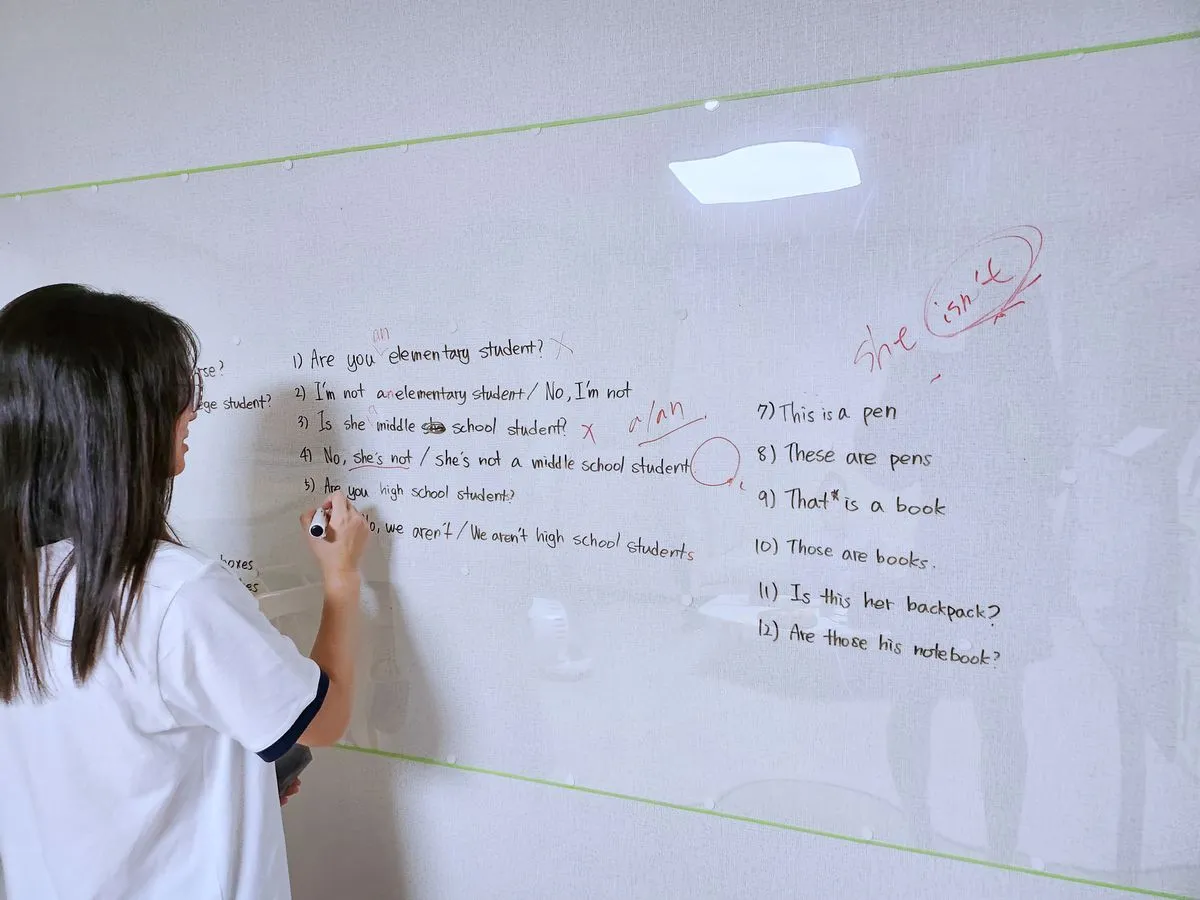 rse?
ege student?
oxes,
es
an
1) Are you elementary student? X
2) I'm not an elementary student / No, I'm not
a
3) Is she middle school student? X
a/an
4) No, she's not / she's not a middle school student
5) Are you high school student?
No, we aren't / We aren't high school students
she isn't
7) This is a pen
8) These are pens
9) That* is a book
10) Those are books.
11) Is this her backpack?
12) Are those his notebook?